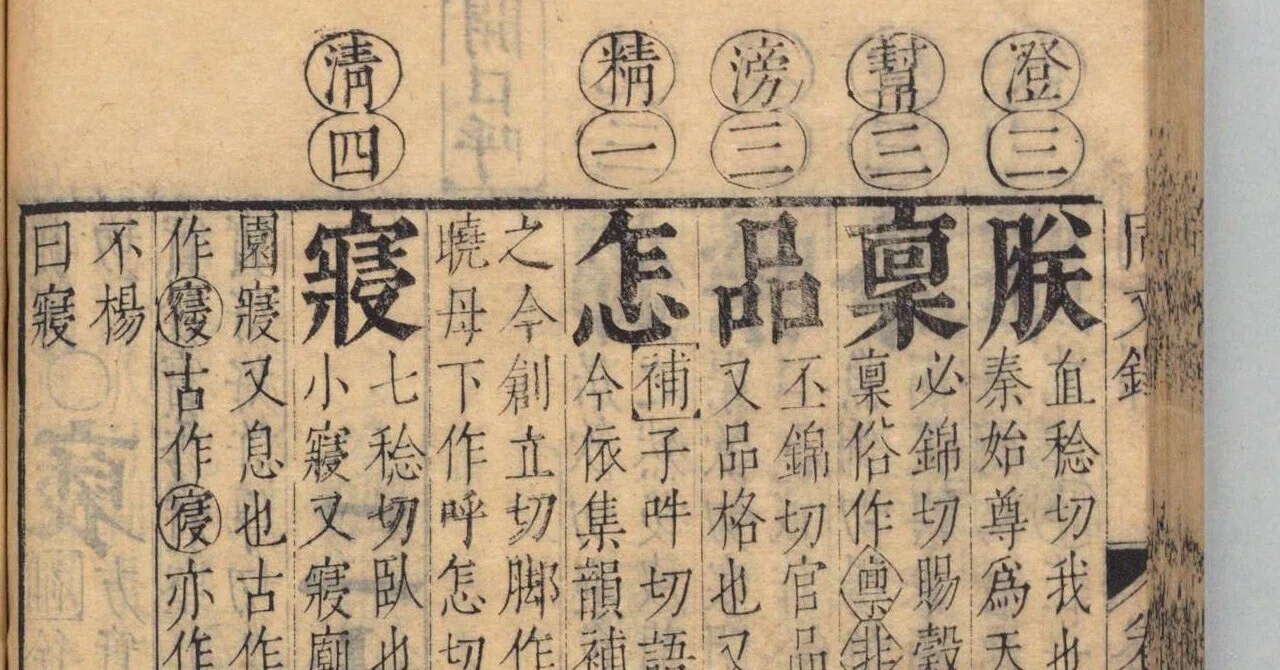 澄三
朕
直稔切我也
秦始尊爲天
幫三
稟
必錦切賜穀
稟俗作禀非
滂三
品
丕錦切官品
又品格也又
精一
怎
補子吽切語
今依集韻補
之今創立切脚作
曉母下作呼怎切
清四
寢
七稔切臥也
小寢又寢廟
園寢又息也古作
作寑古作亦作
不楊
曰寢